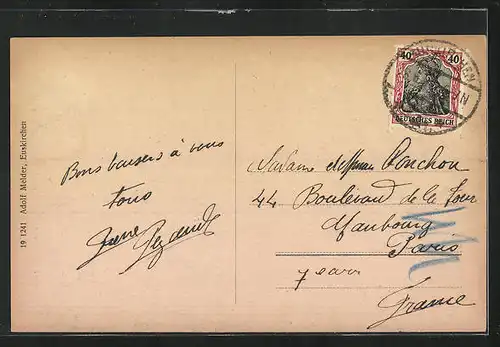 19 1241 Adolf Melder, Euskirchen
Bons baisers à vous
tous
40 40
DEUTSCHES REICH
Madame Ponchon
44 Boulevard de la Tour
Maubourg
Paris
France